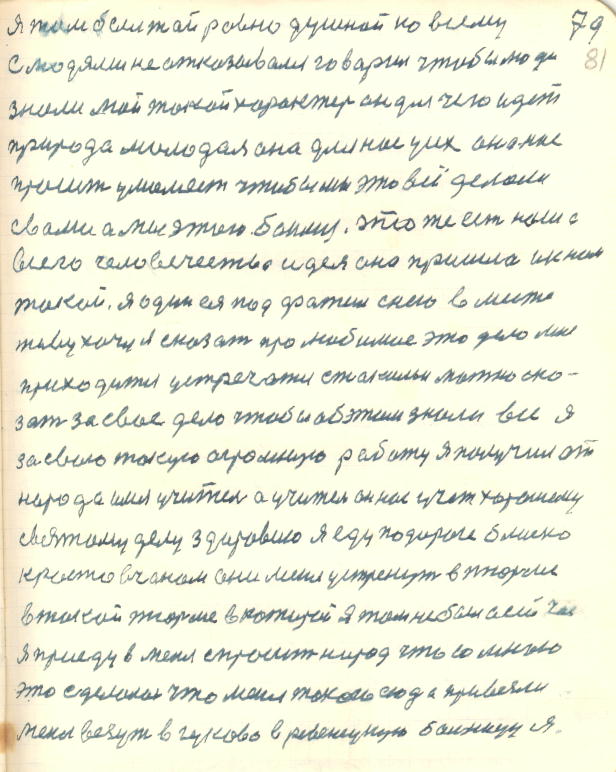 79
81
я там был такой равно душной ко всему
с людями не отказывался говарил чтобы люди
знали мой такой характер он для чего идет
природа молодая она для нас уих она нас
просит умоляет чтобы мы это всё делали
свами а мы этого боимся. это же ест наша
всего человечества идея она пришла к нам
такой. я один ея под фатил с нею в месте
живу хочу я сказат про любимое это дело мне
приходится устречатся стакими можно ска-
зат за свое дело чтобы обэтом знали все я
за свою такую огромную работу я получил от
народа имя учител а учител он нас учит хорошему
святому делу здаровию я еду подороге близко
кростовчаном они меня устренут в тюрме
в такой тюрме в которой я там не был
я приеду в меня спросит народ что со мною
это сделалос что меня такого сюда привезли
меня везут в гуково в ровенскую бол я